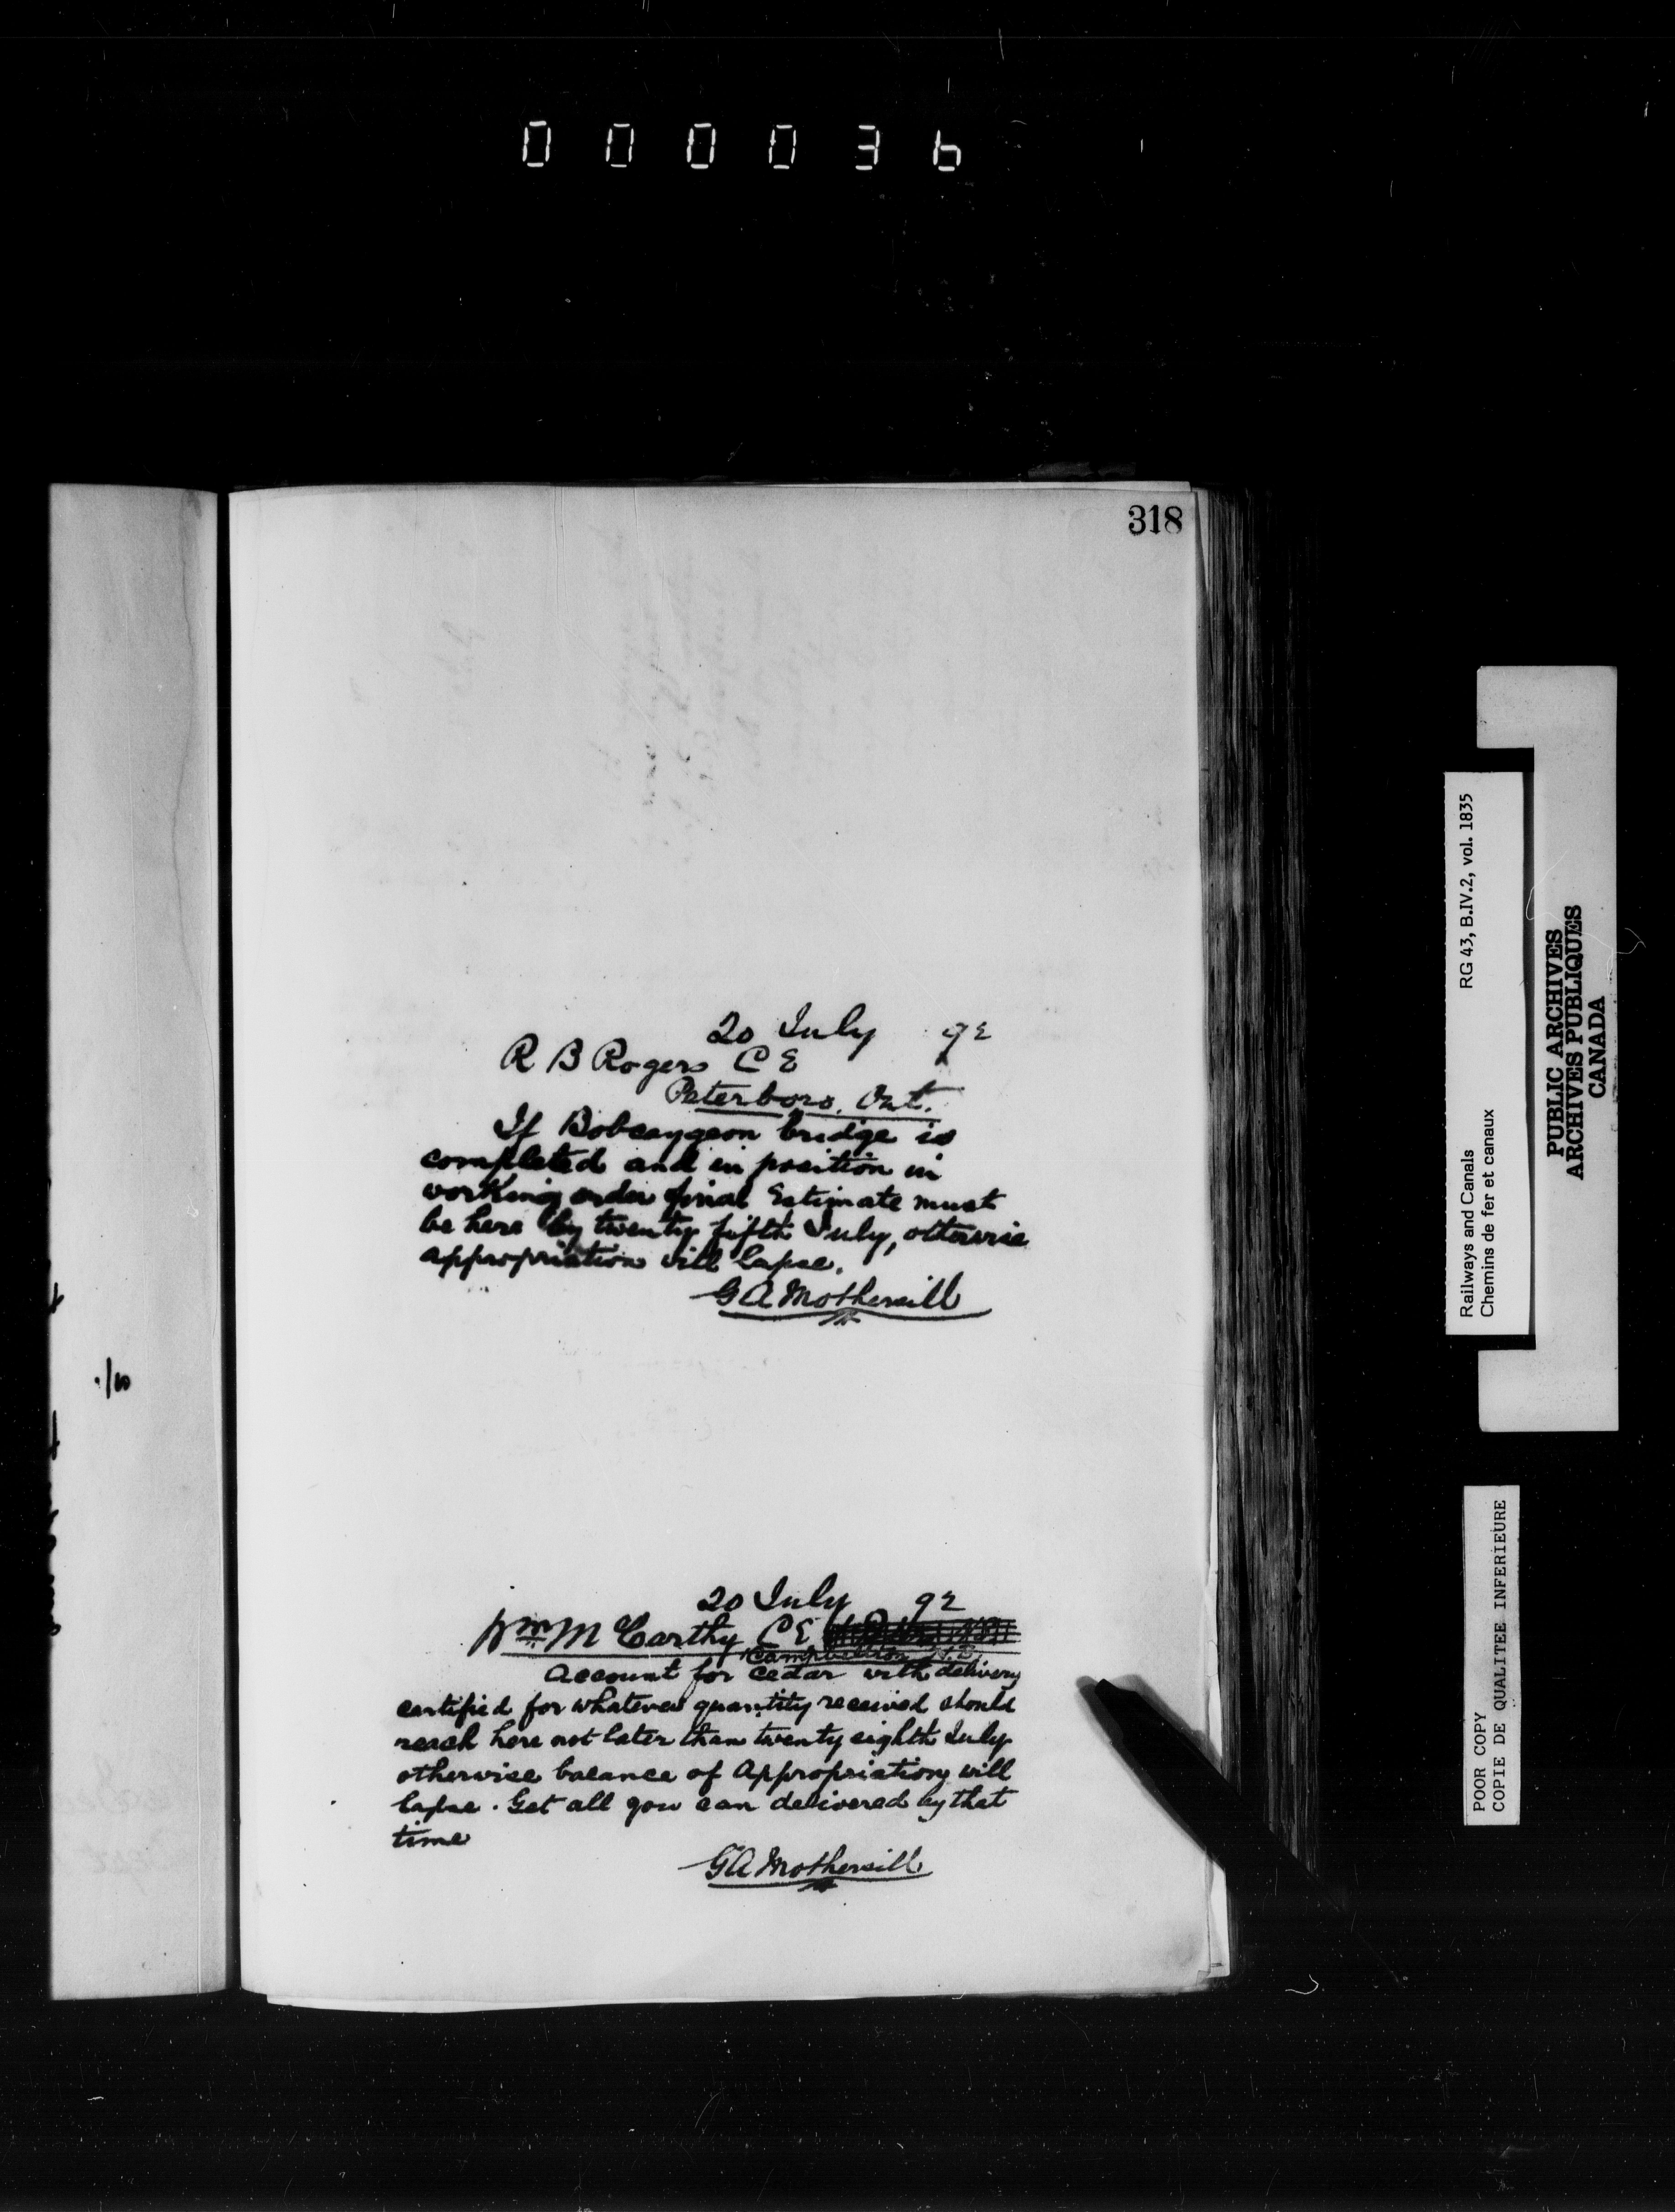 000036
318
20 July 92
R B Rogers C E
Peterboro. Ont.
If Bobcaygeon bridge is
completed and in position in
working order final Estimate must
be here by twenty fifth July, otherwise
appropriation will lapse.
G A Mothersill
20 July 92
Wm McCarthy C E
Campbellton N.B.
Account for cedar with delivery
certified for whatever quantity received should
reach here not later than twenty eighth July
otherwise balance of Appropriation will
lapse. Get all you can delivered by that
time
G A Mothersill
Railways and Canals RG 43, B.IV.2, vol. 1835
Chemins de fer et canaux
PUBLIC ARCHIVES
ARCHIVES PUBLIQUES
CANADA
POOR COPY
COPIE DE QUALITEE INFERIEURE